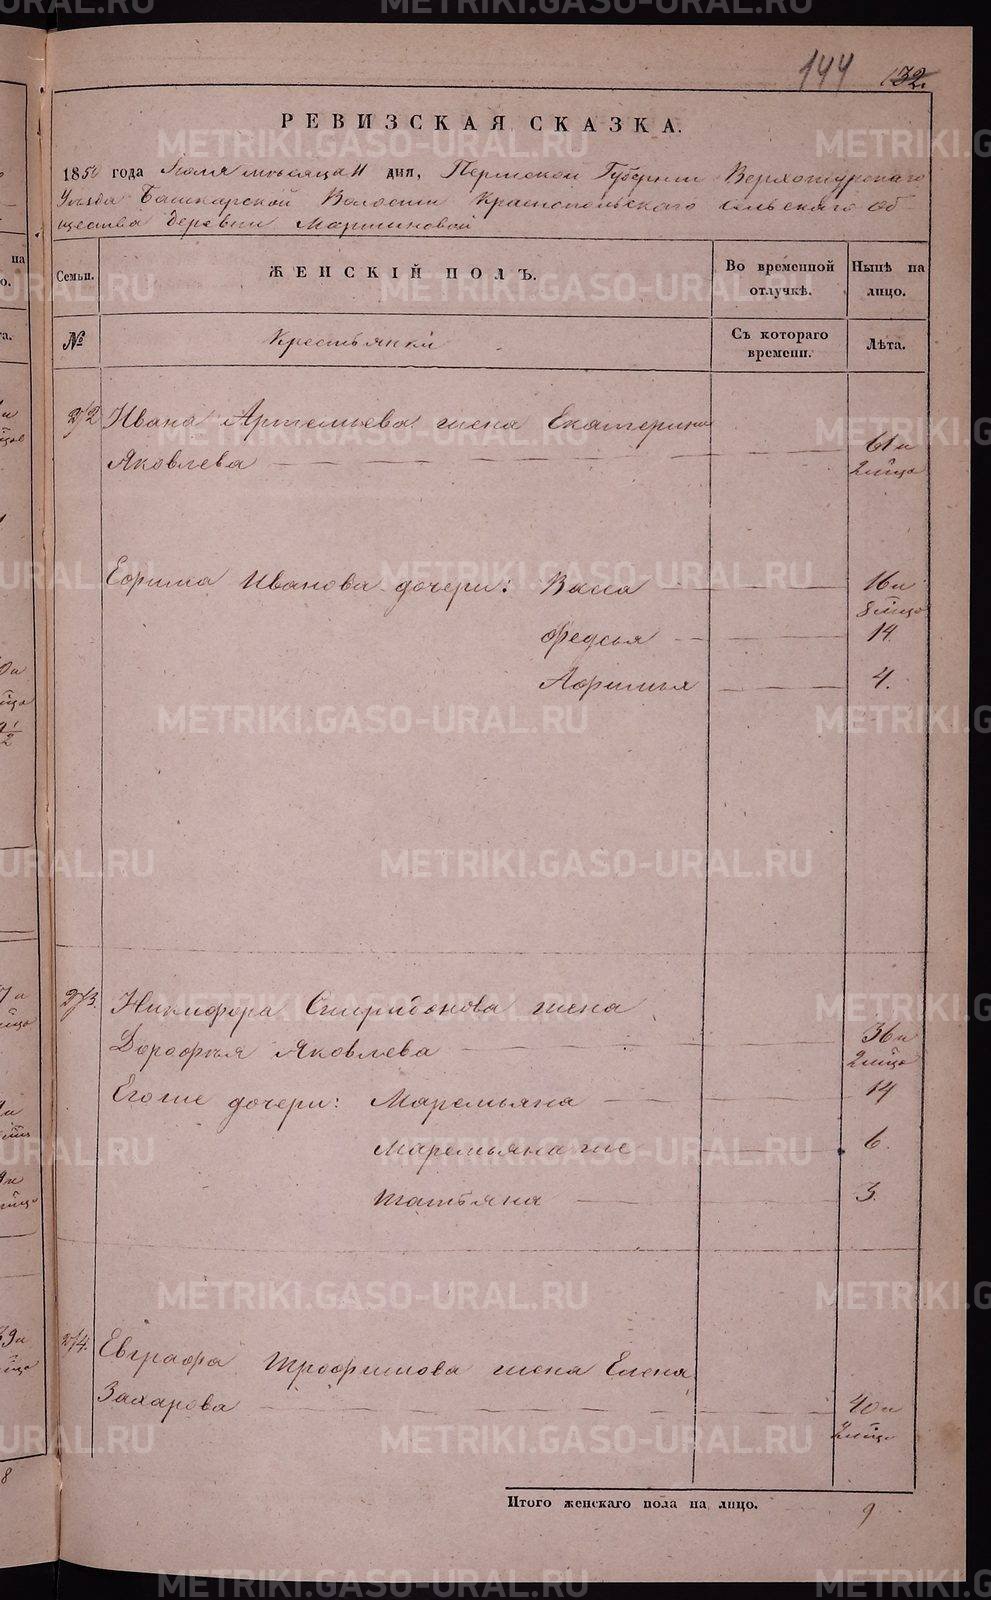 144 132.
РЕВИЗСКАЯ СКАЗКА.
1850 года Июля месяца 11 дня, Пермской Губернии Верхотурскаго
Уезда Башкарской Волости Краснопольскаго сельскаго об
щества деревни Мартиновой
Семьи. ЖЕНСКІЙ ПОЛЪ. Во временной отлучкѣ. Нынѣ на лицо.
№ Крестьянки Съ котораго времени. Лѣта.
Ивана Артемьева жена Екатерина
Яковлева 61 и
2 мѣца
Ефима Иванова дочери: Васса 16 и
8 мѣцо
Федосья 14
Афимья 4.
Никифора Спиридонова жена
Дорофья Яковлева 36 и
2 мѣца
Его же дочери: Маремьяна 14
Маремьяна же 6.
Татьяна 3.
Евграфа Трофимова жена Елена
Захарова 40 и
2 мѣца
Итого женскаго пола на лицо. 9
METRIKI.GASO-URAL.RU